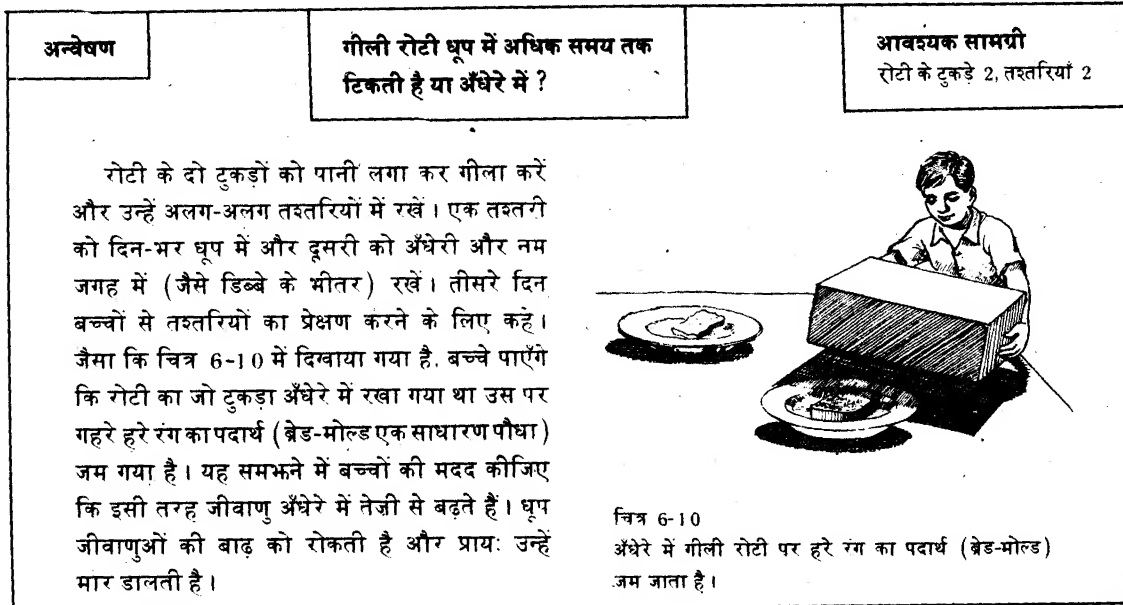 अन्वेषण
गीली रोटी धूप में अधिक समय तक
टिकती है या अँधेरे में ?
आवश्यक सामग्री
रोटी के टुकड़े 2, तश्तरियाँ 2
रोटी के दो टुकड़ों को पानी लगा कर गीला करें
और उन्हें अलग-अलग तश्तरियों में रखें । एक तश्तरी
को दिन-भर धूप में और दूसरी को अँधेरी और नम
जगह में (जैसे डिब्बे के भीतर) रखें । तीसरे दिन
बच्चों से तश्तरियों का प्रेक्षण करने के लिए कहें ।
जैसा कि चित्र 6-10 में दिखाया गया है. बच्चे पाएँगे
कि रोटी का जो टुकड़ा अँधेरे में रखा गया था उस पर
गहरे हरे रंग का पदार्थ (ब्रेड-मोल्ड एक साधारण पौधा)
जम गया है । यह समझने में बच्चों की मदद कीजिए
कि इसी तरह जीवाणु अँधेरे में तेज़ी से बढ़ते हैं । धूप
जीवाणुओं की बाढ़ को रोकती है और प्रायः उन्हें
मार डालती है ।
चित्र 6-10
अँधेरे में गीली रोटी पर हरे रंग का पदार्थ (ब्रेड-मोल्ड)
जम जाता है ।